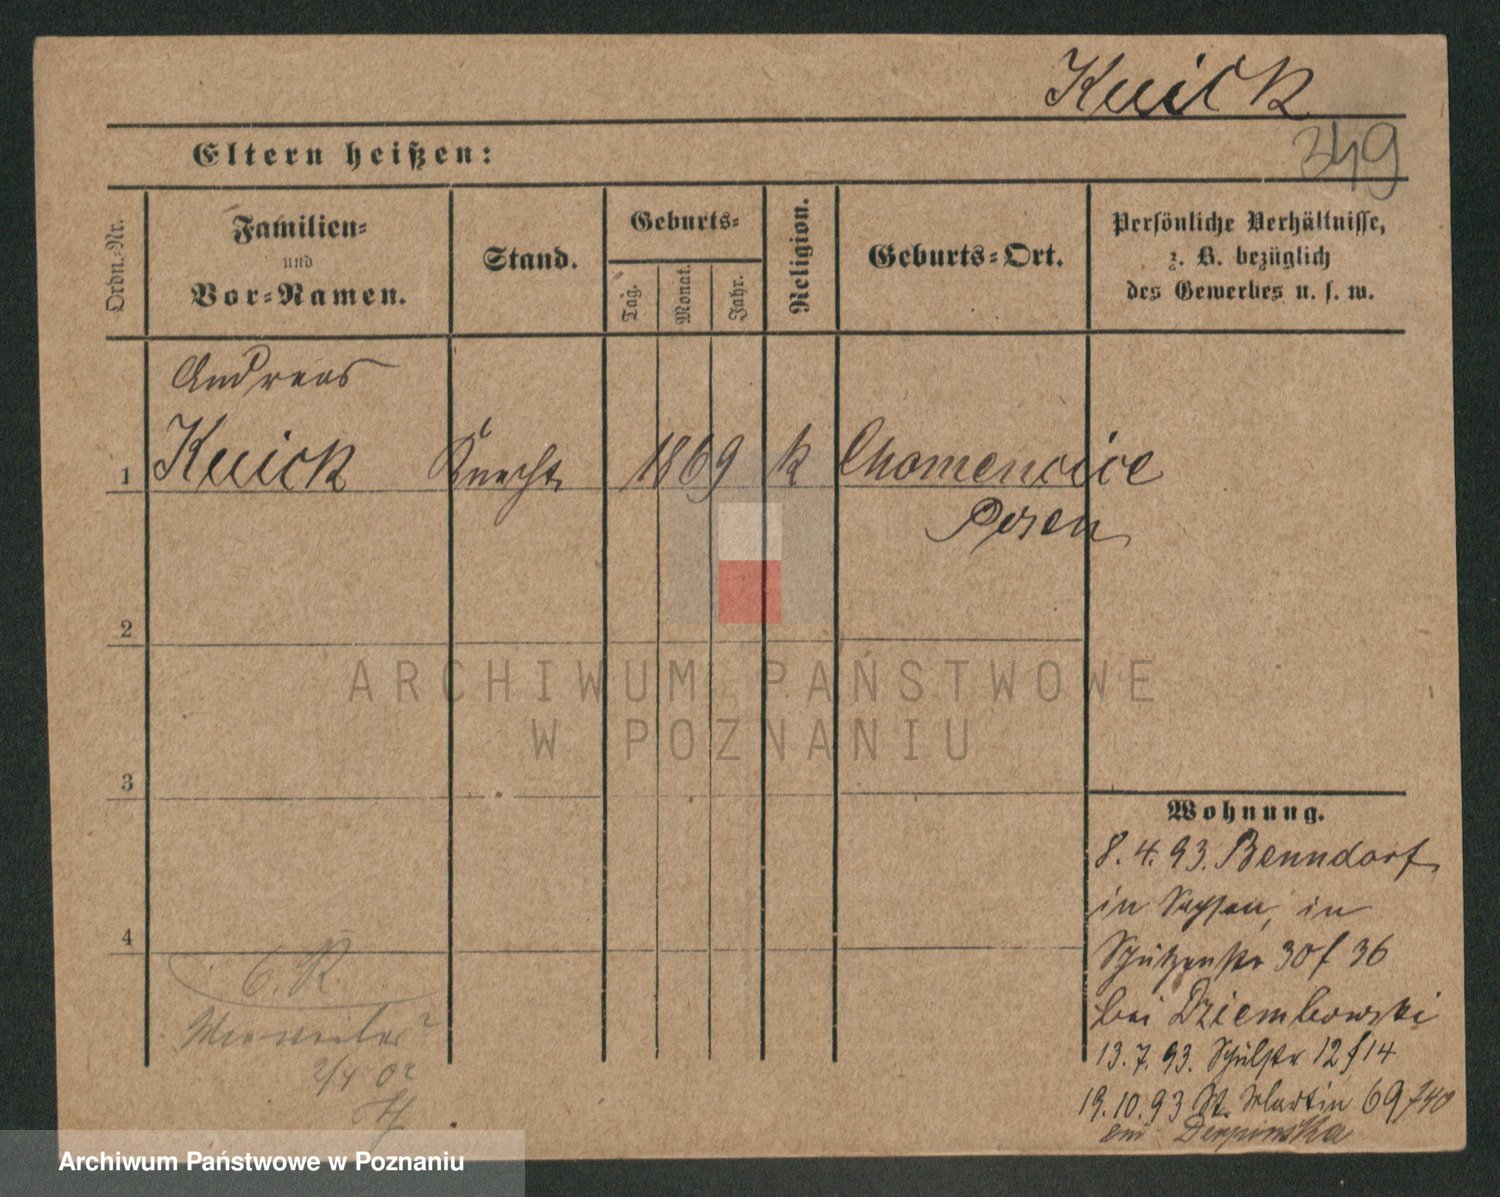 Kuick
349
Eltern heißen:
Ordn.-Nr.
Familien-
und
Vor-Namen.
Stand.
Geburts-
Tag.
Monat.
Jahr.
Religion.
Geburts-Ort.
Persönliche Verhältnisse,
z. B. bezüglich
des Gewerbes u. s. w.
Andreas
1 Kuick Knecht 1869 k Chomencice
Posen
2
3
4
Wohnung.
8.4.93. Benndorf
in Sachsen, in
Schützenstr 30 f 36
bei Dziembowski
13.7.93. Schulstr 12 f 14
19.10.93 St. Martin 69
C. R.
2/4 02
ARCHIWUM PAŃSTWOWE
W POZNANIU
Archiwum Państwowe w Poznaniu